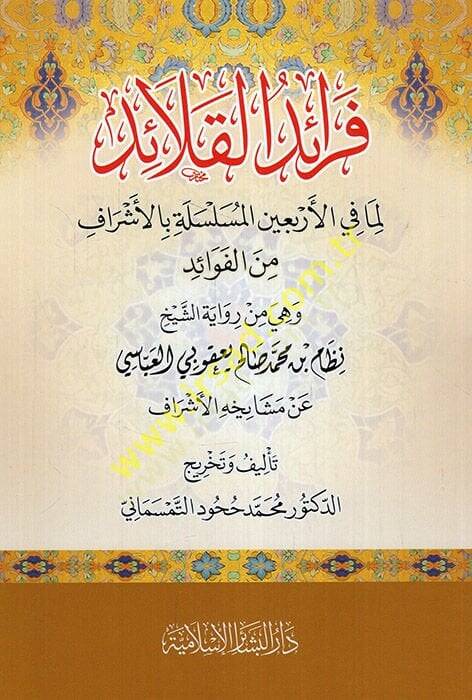 فَرَائِدُ القَلَائِد
لِمَا فِي الأَرْبَعِين المُسَلْسَلَةِ بِالأَشْرَافِ
مِنَ الفَوَائِدِ
وَهِيَ مِنْ رِوَايَةِ الشَّيْخِ
نظام بن محمد صالح يعقوبي العباسي
عَنْ مَشَايِخِهِ الأَشْرَافِ
تَأْلِيفُ وَتَخْرِيج
الدّكتُور مُحَمَّد حُحُود التَّمْسَمَانِيّ
دَارُ البَشَائِرِ الإِسْلَامِيَّة